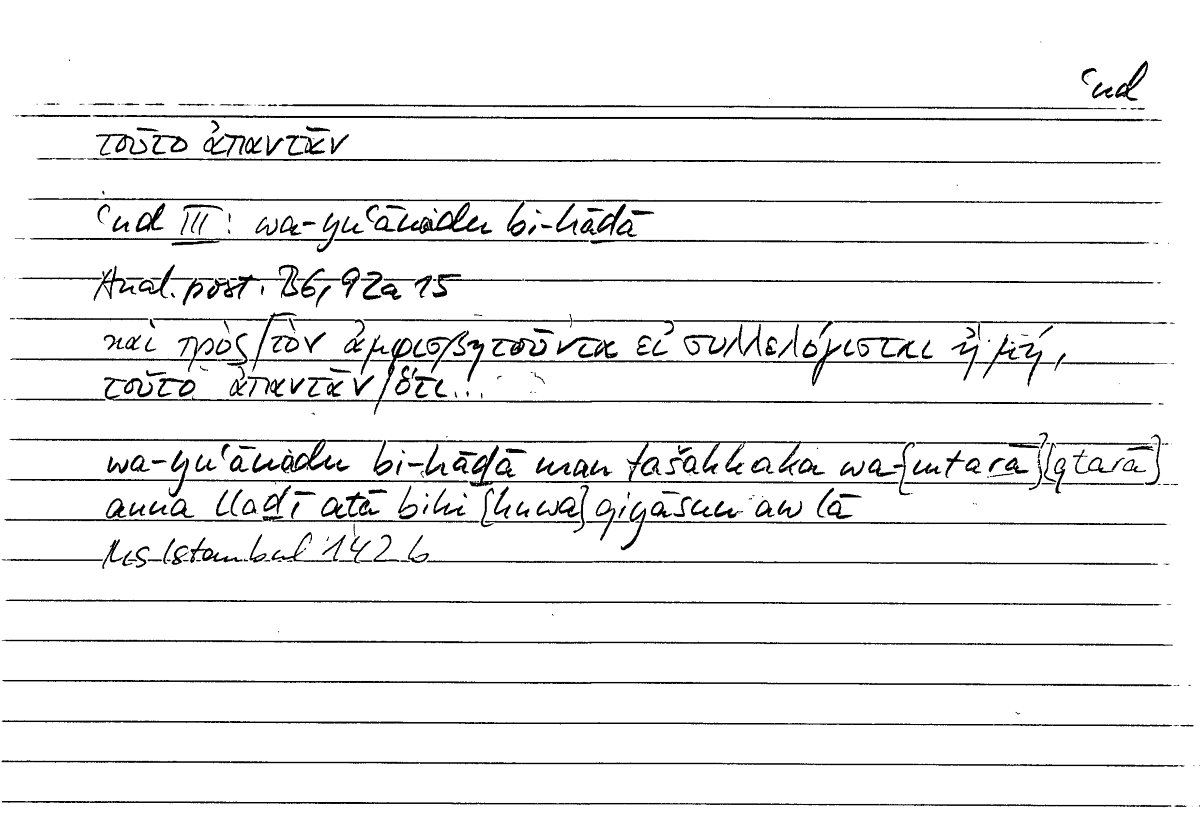 ʿnd
τοῦτο ἀπαντᾶν
ʿnd III: wa-yuʿānidu bi-hāḏā
Anal. post. B6, 92a 15
καὶ πρὸς/τὸν ἀμφισβητοῦντα εἰ συλλελόγισται ἢ μή,
τοῦτο ἀπαντᾶν/ὅτι...
wa-yuʿānadu bi-hāḏā man tašakkaka wa-{mtarā}{qtarā}
anna lladī atā bihi {huwa} qiyāsun aw lā
Ms Istanbul 142 b